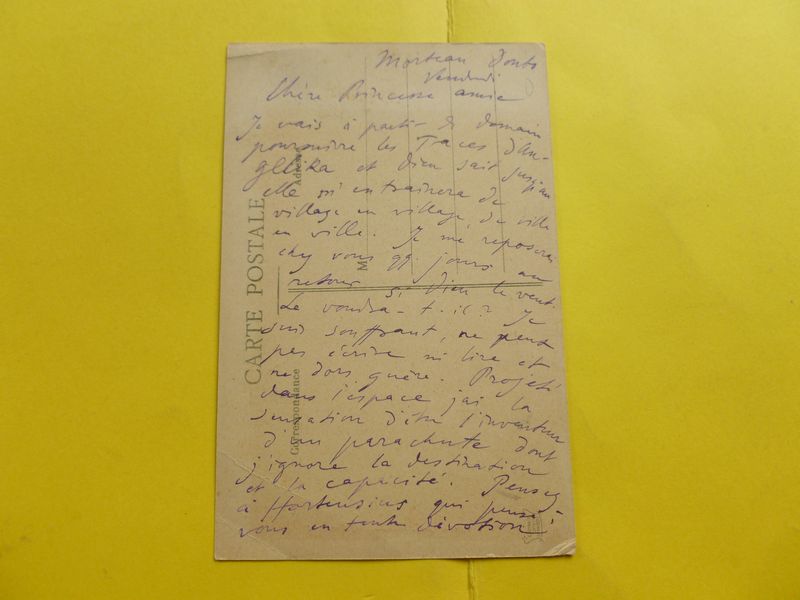 Morteau Doubs
Vendredi
Chère Princesse amie
Je vais à partir de demain
poursuivre les Traces d'An-
gellika et Dieu sait jusqu'où
elle m'entrainera de
village en village, de ville
en ville. Je me reposerai
chez vous qq. jours au
retour si Dieu le veut.
Le voudra-t-il? Je
suis souffrant, ne peux
pas écrire ni lire et
ne dors guère. Projeté
dans l'espace j'ai la
sensation d'être l'inventeur
d'un parachute dont
j'ignore la destination
et la capacité. Pensez
à Hortensius qui pense à
vous en toute dévotion
CARTE POSTALE
Correspondance
Adresse
M